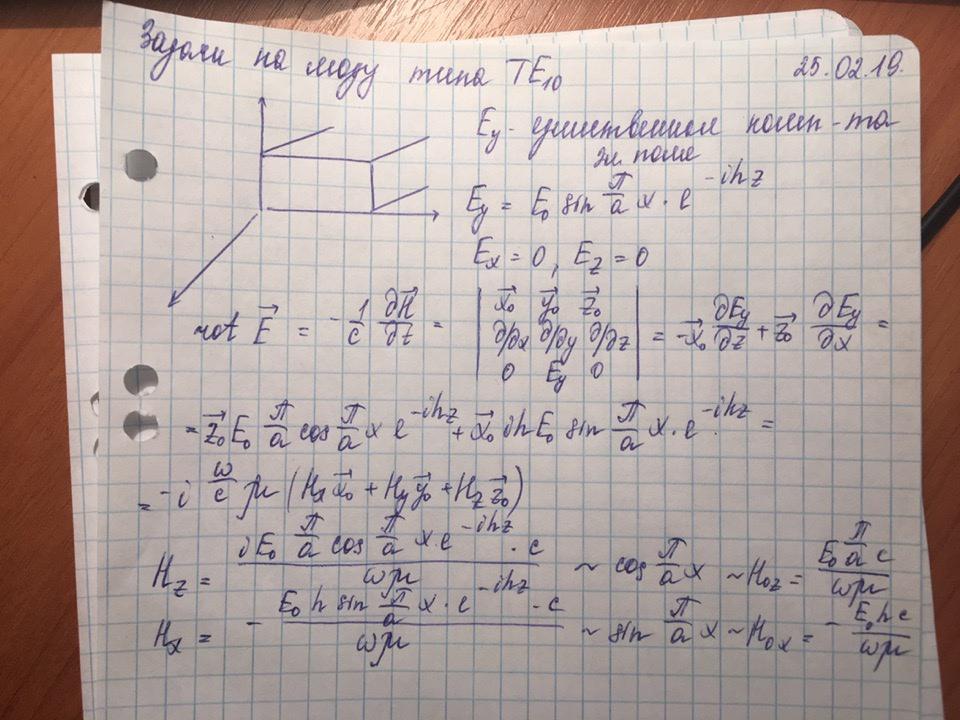 Задали на моду типа TE₁₀ 25.02.19.
E_y - единственная комп-та
эл. поле
E_y = E₀ sin π/a x · e^(-ihz)
E_x = 0, E_z = 0
rot E⃗ = - 1/c ∂H⃗/∂z = | x⃗₀ y⃗₀ z⃗₀ ; ∂/∂x ∂/∂y ∂/∂z ; 0 E_y 0 | = -x⃗₀ ∂E_y/∂z + z⃗₀ ∂E_y/∂x =
= z⃗₀ E₀ π/a cos π/a x e^(-ihz) + x⃗₀ ihE₀ sin π/a x · e^(-ihz) =
= -i ω/c μ (H_x x⃗₀ + H_y y⃗₀ + H_z z⃗₀)
H_z = (iE₀ π/a cos π/a x · e^(-ihz) · c)/(ωμ) ~ cos π/a x ~ H₀z = (E₀ π/a c)/(ωμ)
H_x = - (E₀ h sin π/a x · e^(-ihz) · c)/(ωμ) ~ sin π/a x ~ H₀x = - (E₀hc)/(ωμ)